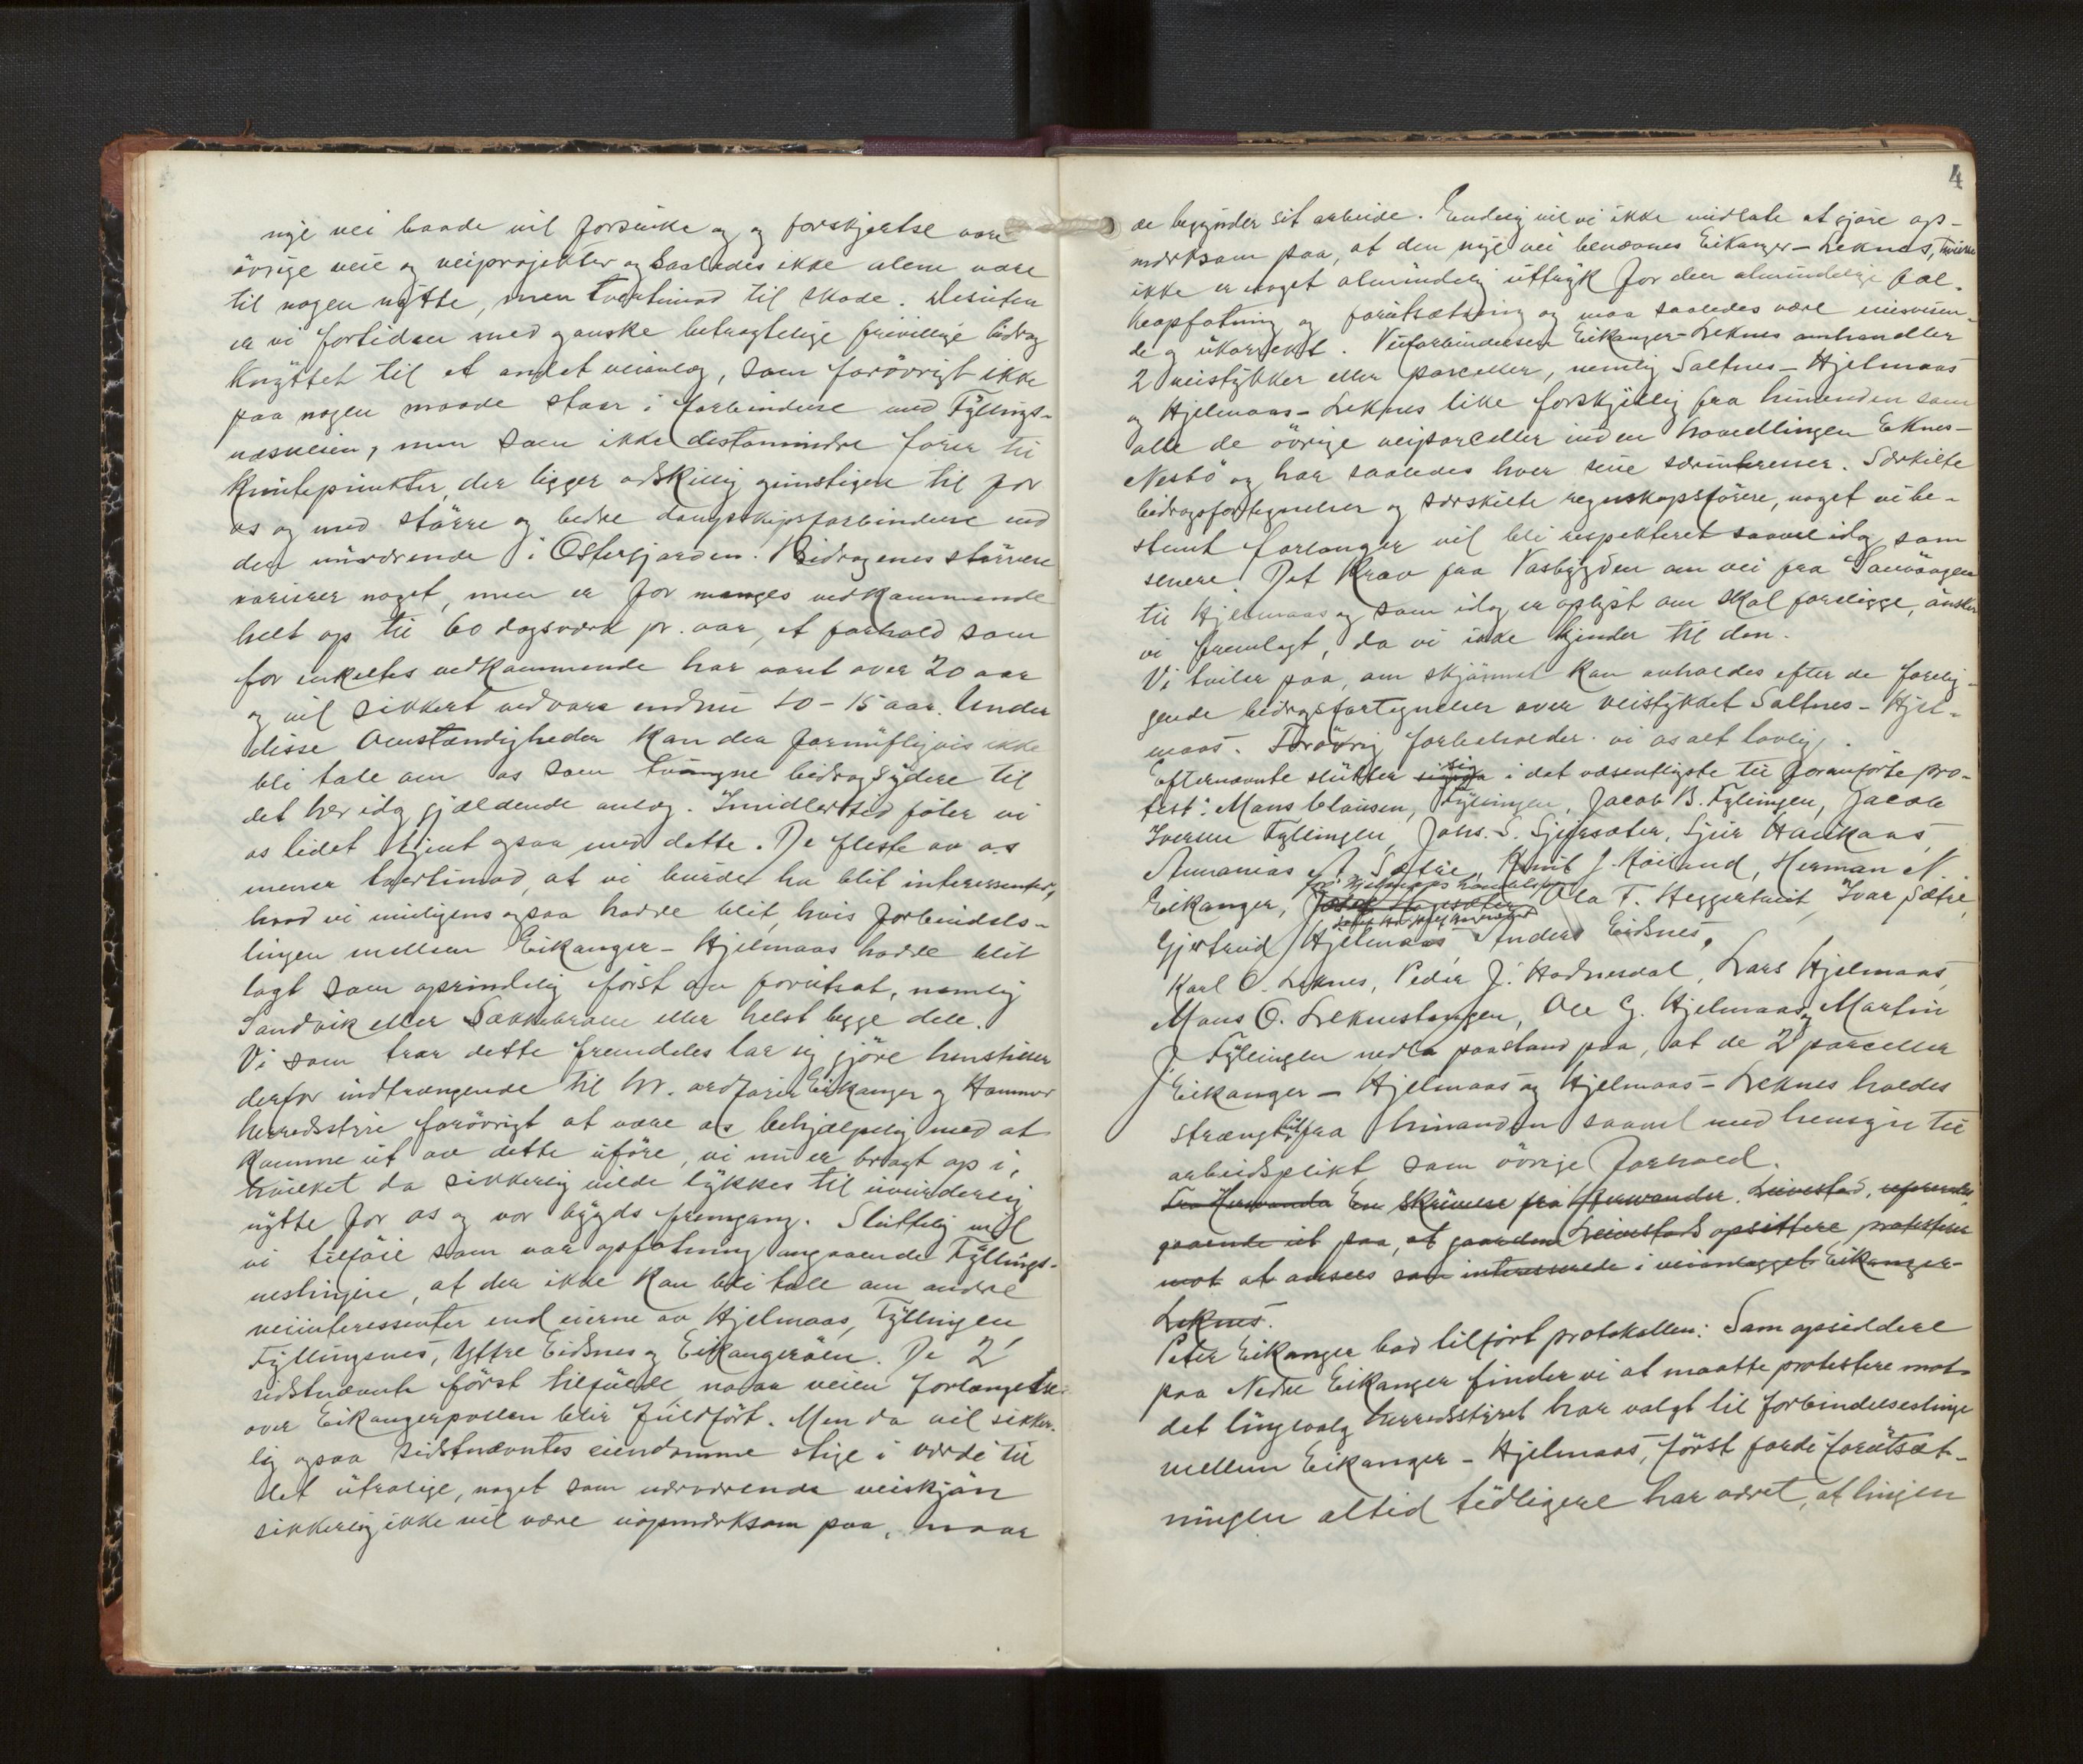 nye vei baade vil forsinke og og forskjertse vore
övrige veie og veiprojekter og saaledes ikke alene være
til nogen nytte, men tvertimod til skade. Desuten
er vi fortiden med ganske betragtelige frivillige bidrag
knyttet til et andet veianlæg, som forövrigt ikke
paa nogen maade staar i forbindelse med Fyllings-
næsveien, men som ikke destomindre förer til
knutepunkter, der ligger adskillig gunstigere til for
os og med större og bedre dampskipsforbindelse end
den nuværende i Osterfjorden. Bidragenes störrelse
varierer noget, men er for manges vedkommende
helt op til 60 dagsværk pr. aar, et forhold som
for enkeltes vedkommende har varet over 20 aar
og vil sikkert vedvare endnu 10-15 aar. Under
disse Omstændigheder kan der fornuftigvis ikke
bli tale om os som tvungne bidragsydere til
det her idag gjældende anlæg. Imidlertid föler vi
os lidet tjent ogsaa med dette. De fleste av os
mener tvertimod, at vi burde ha blit interessenter,
hvad vi muligens ogsaa hadde blit, hvis forbindels-
linjen mellem Eikanger - Hjelmaas hadde blit
lagt som oprindelig först var forutsat, nemlig
Sandvik eller Sakkebroen eller helst begge dele.
Vi som tror dette fremdeles lar sig gjöre henstiller
derfor indtrængende til hr. ordförer Eikanger og Hammer
herredsstyre forövrigt at være os behjælpelig med at
komme ut av dette uföre, vi nu er bragt op i,
hvilket da sikkerlig vilde lykkes til uvurderlig
nytte for os og vor bygds fremgang. Sluttelig vil
vi tilföie som vor opfatning angaaende Fyllings-
neslinjen, at der ikke kan bli tale om andre
veiinteressenter end eierne av Hjelmaas, Fyllingen
Fyllingsnes, Yttre Eidsnes og Eikangeröen. De 2
sidstnævnte först tilfulde naar veien forlængelse
over Eikangerpollen blir fuldfört. Men da vil sikker-
lig ogsaa sidstnævntes eiendomme stige i værdi til
det utrolige, noget som nærværende veiskjön
sikkerlig ikke vil være uopmerksom paa, naar
4
de begynder sit arbeide. Endelig vil vi ikke undlate at gjöre op-
merksom paa, at den nye vei benævnes Eikanger - Leknes,
ikke er noget almindelig uttryk for den almindelige fol-
keopfatning og forutsætning og maa saaledes være misvisen-
de og ukorrekt. Veiforbindelsen Eikanger-Leknes omhandler
2 veistykker eller parceller, nemlig Saltnes - Hjelmaas
og Hjelmaas - Leknes like forskjellig fra hinanden som
alle de övrige veiparceller inden hovedlinjen Eknes -
Nesbö og har saaledes hver sine særinteresser. Særskilte
bidragsfortegnelser og særskilte regnskapsförere, noget vi be-
stemt forlanger vil bli respekteret saavel idag som
senere. Det krav fra Vasbygden om vei fra
til Hjelmaas og som idag er oplyst om skal foreligge, önsker
vi fremlagt, da vi ikke kjender til den.
Vi tviler paa, om skjönnet kan avholdes efter de forelig-
gende bidragsfortegnelser over veistykket Saltnes - Hjel-
maas. Forövrig forbeholder vi os alt lovlig.
Efternævnte slutter sig i det væsentligste til foranförte pro-
test: Mons Clausen, Fyllingen, Jacob B. Fyllingen, Jacob
Iversen Fyllingen, Johs. S. Gjersæter, Sjur Haukaas,
Annanias A. Sætre, Knut J. Höiland, Herman N.
for Hjelmaas
Eikanger, Ola T. Heggertveit, Ivar Sætre,
Gjertrud Hjelmaas, Anders Eidsnes,
Karl O. Leknes, Peder J. Hodnesdal, Lars Hjelmaas,
Mons O. Leknestangen, Ole G. Hjelmaas og Martin
J. Fyllingen nedla paastand paa, at de 2 parceller
Eikanger - Hjelmaas og Hjelmaas - Leknes holdes
strængt fra hinanden saavel med hensyn til
arbeidsplikt som övrige forhold.
En skrivelse fra Leivestad,
gaaende ut paa, at gaarden Leivestads opsittere protesterer
mot at ansees som interesserede i veianlægget Eikanger-
Leknes.
Peter Eikanger bad tilfört protokollen: Som opsiddere
paa Nedre Eikanger finder vi at maatte protestere mot
det linjevalg herredsstyret har valgt til forbindelseslinje
mellem Eikanger - Hjelmaas, först fordi forutsæt-
ningen altid tidligere har været, at linjen